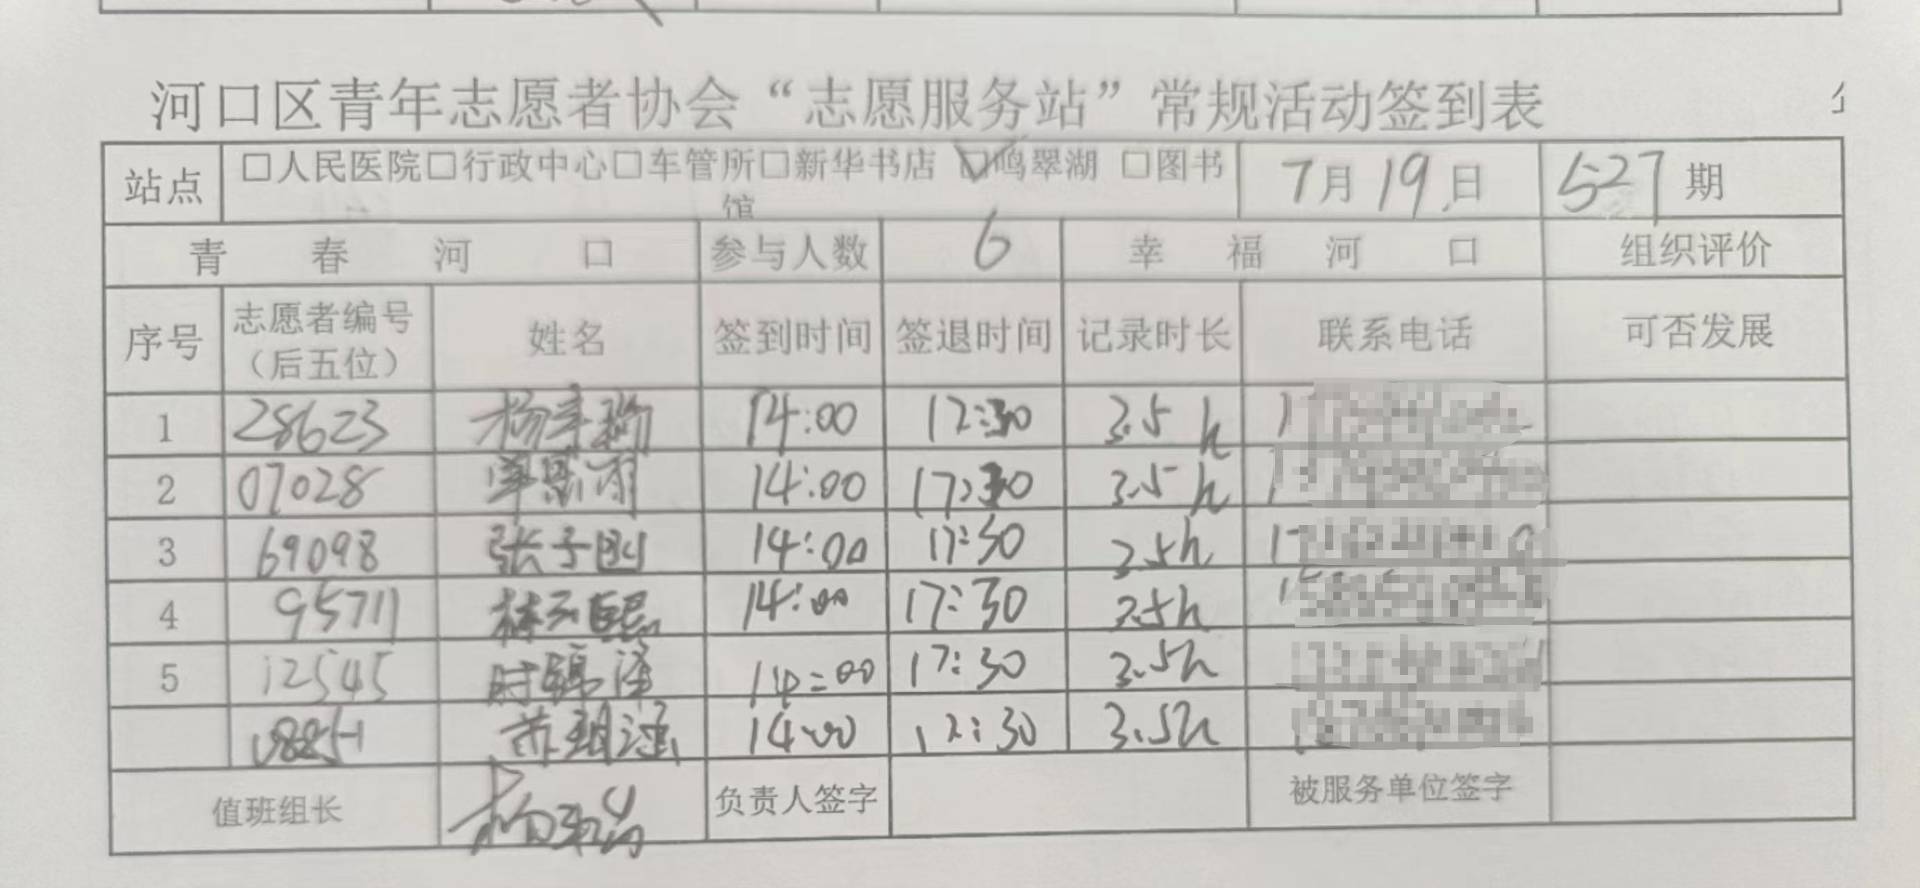 河口区青年志愿者协会“志愿服务站”常规活动签到表
站点 □人民医院□行政中心□车管所□新华书店 ☑鸣翠湖 □图书馆 7月19日 527期
青春河口 参与人数 6 幸福河口 组织评价
序号 志愿者编号（后五位） 姓名 签到时间 签退时间 记录时长 联系电话 可否发展
1 28623 14:00 17:30 3.5h
2 07028 14:00 17:30 3.5h
3 69098 张子 14:00 17:30 3.5h
4 95711 林 14:00 17:30 3.5h
5 12545 时 泽 14:00 17:30 3.5h
苏 涵 14:00 17:30 3.5h
值班组长 负责人签字 被服务单位签字